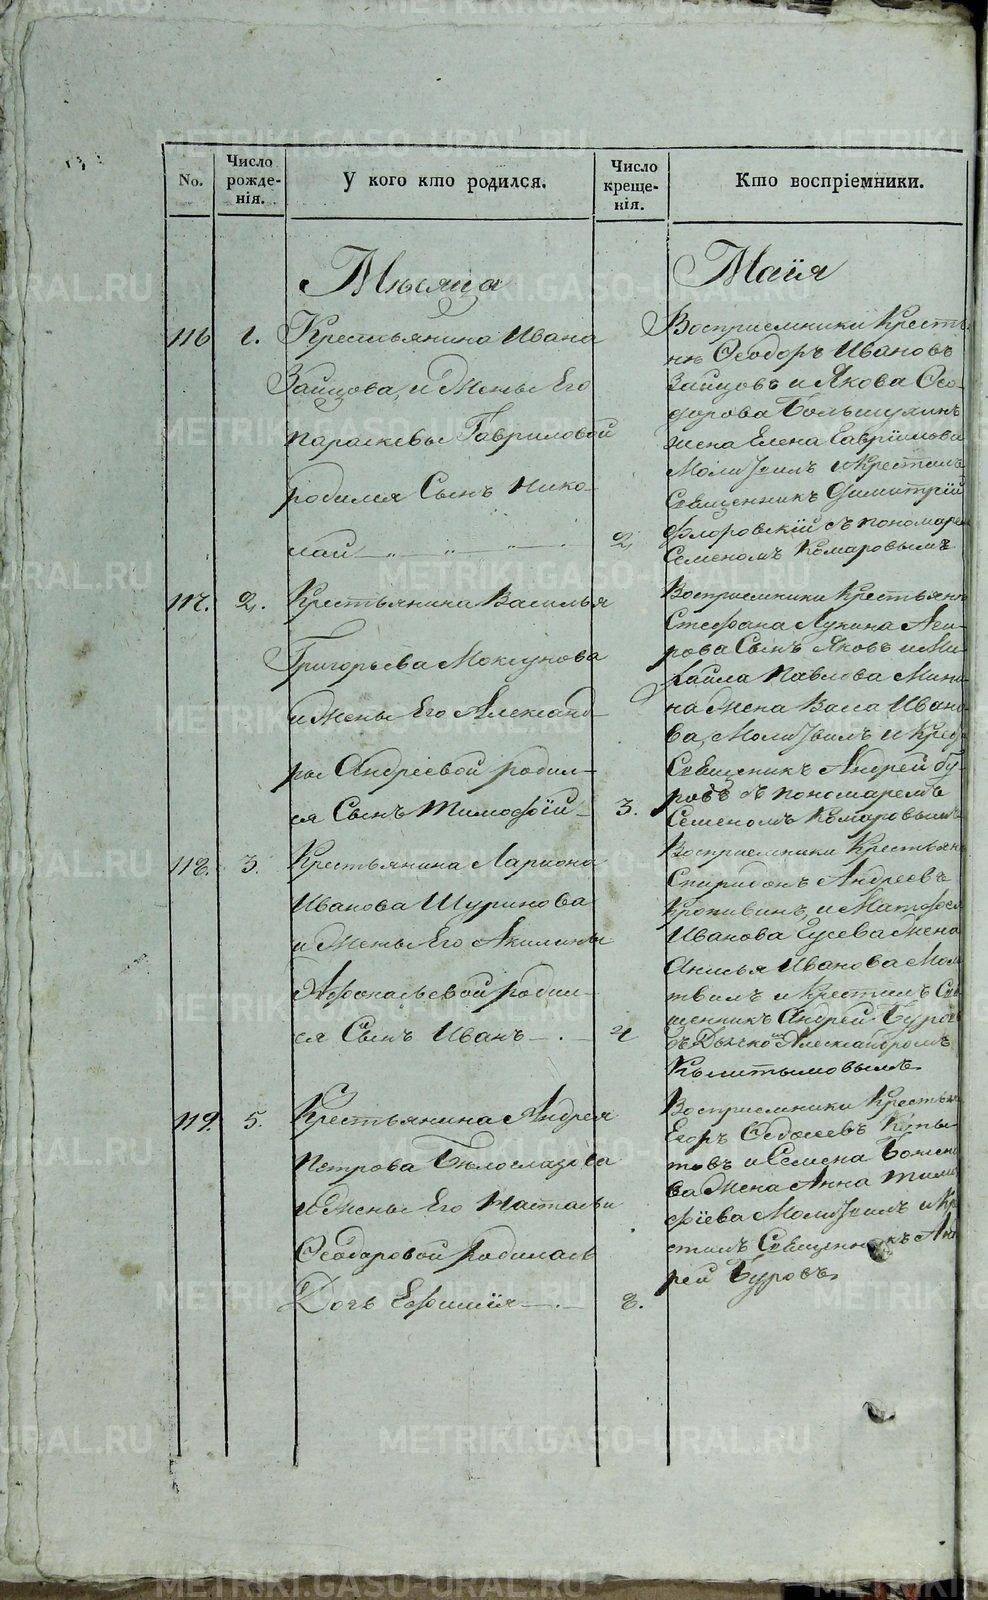 No.
Число рожде-нія.
У кого кто родился.
Число креще-нія.
Кто воспріемники.
Мѣсяца
Маїя
116
1.
Крестьянина Ивана
Зайцова, и Жены Его
параскевы Гавриловой
родился Сынъ Нико-
лай
2,
Восприемники Кресть
нѣ Ѳеодоръ Ивановъ
Зайцовъ и Якова Ѳео-
дорова
жена Елена Гаврїилова
Молитвилъ и Крестилъ
Священникъ Димитрїй
Флоровскїй съ пономарем
Семеномъ Комаровымъ
117.
2.
Крестьянина Василья
Григорьева Моксунова
и Жены Его Александ-
ры Андреевой родил-
ся Сынъ Тимофѣй
3.
Восприемники Крестьян
Стефана Лукина
рова Сынъ Яковъ и Ми-
хайла Павлова Мини-
на Жена Васа Ивано
ва, Молитвилъ и Крес
Священикъ Андрей Бу-
ровъ съ пономаремъ
Семеномъ Комаровымъ
118.
3.
Крестьянина Лариона
Иванова Шуринова
и Жены Его Акилины
Афонасьевой родил-
ся Сынъ Иванъ
4
Восприемники Крестьян
Спиридонъ Андреевъ
Кропивинъ, и Матфея
Иванова Гусева Жена
Анисья Иванова Моли
твилъ и Крестилъ Свя
щенникъ Андрей Буровъ
съ Дьячкомъ Александромъ
119.
5.
Крестьянина Андрея
Петрова Бѣлоглазова
и Жены Его Натальи
Ѳеодоровой родилась
Дочь Ефимїя
8.
Восприемники Крестьян
Егоръ
товъ и Семена Божено
ва Жена Анна Тимо
фїева Молитвилъ и Кре
стилъ Священникъ Анд
рей Буровъ
METRIKI.GASO-URAL.RU